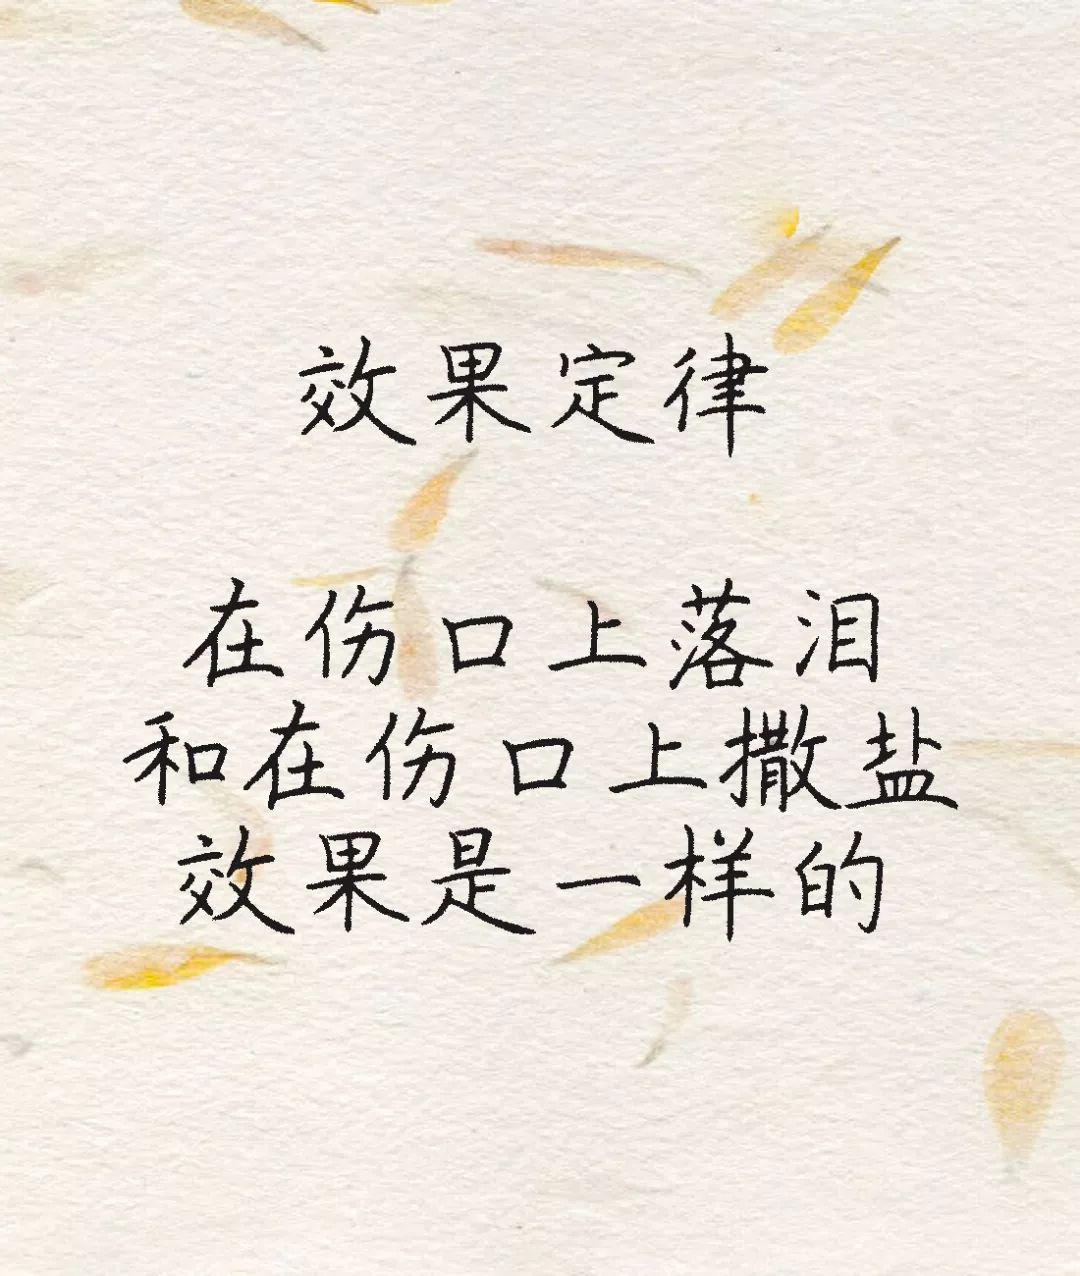 效果定律
在伤口上落泪
和在伤口上撒盐
效果是一样的